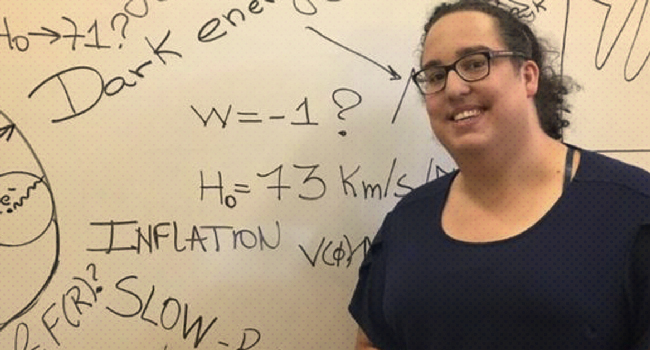 H₀→71?
Dark energy
W=-1?
H₀=73 Km/s/
INFLATION V(φ)
F(R)?
SLOW-R
e⁻